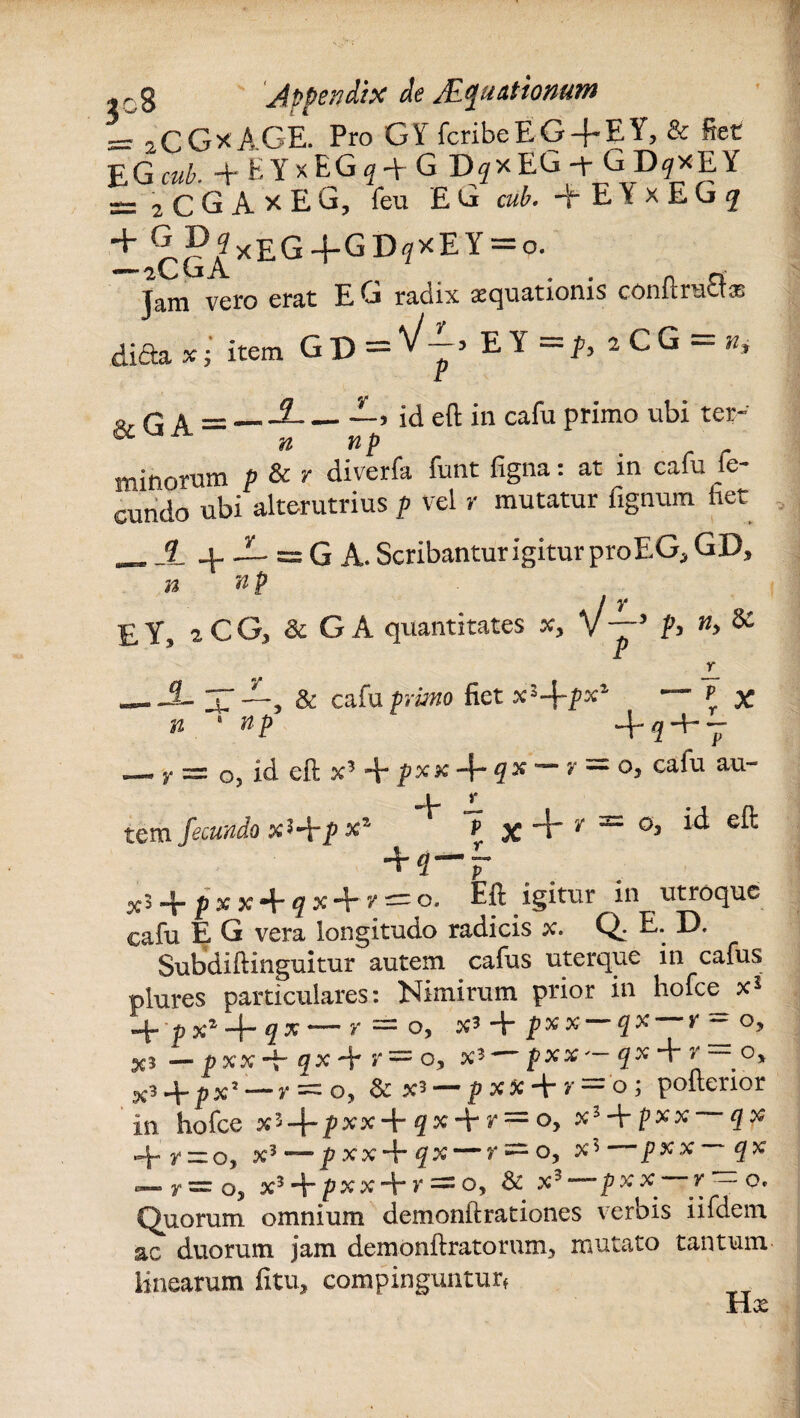 308 Appendix de Æquationum
= 2CG×AGE. Pro GY ſcribe EG+EY, & fiet
EG cub. + EY × EG q + G Dq×EG + G Dq×EY
= 2 C G A × E G, ſeu E G cub. + E Y × E G q
+ G D q
— 2CGA ×EG+GDq×EY = o.
Jam vero erat E G radix æquationis conſtructæ
dicta x; item G D = √ r/p, E Y = p, 2 C G = n,
& G A = — q/n — r/np, id eſt in caſu primo ubi ter-
minorum p & r diverſa ſunt ſigna: at in caſu ſe-
cundo ubi alterutrius p vel r mutatur ſignum fiet
— q/n + r/np = G A. Scribantur igitur pro EG, GD,
EY, 2 CG, & G A quantitates x, √ r/p, p, n, &
— q/n ∓ r/np, & caſu primo fiet x³+px² — r/p + q + r/p x
— r = o, id eſt x³ + pxx + qx — r = o, caſu au-
tem ſecundo x³+p x² + r/p + q — r/p x + r = o, id eſt
x³ + p x x + q x + r = o. Eſt igitur in utroque
caſu E G vera longitudo radicis x. Q. E. D.
Subdiſtinguitur autem caſus uterque in caſus
plures particulares: Nimirum prior in hoſce x³
+ p x² + q x — r = o, x³ + pxx — qx — r = o,
x³ — pxx + qx + r = o, x³ — pxx — qx + r = o,
x³ + px² — r = o, & x³ — p xx + r = o; poſterior
in hoſce x³+pxx + qx + r = o, x³ + pxx — qx
+ r = o, x³ — pxx + qx — r = o, x³ — pxx — qx
— r = o, x³ + pxx + r = o, & x³ — pxx — r = o.
Quorum omnium demonſtrationes verbis iiſdem
ac duorum jam demonſtratorum, mutato tantum
linearum ſitu, compinguntur.
Hæ